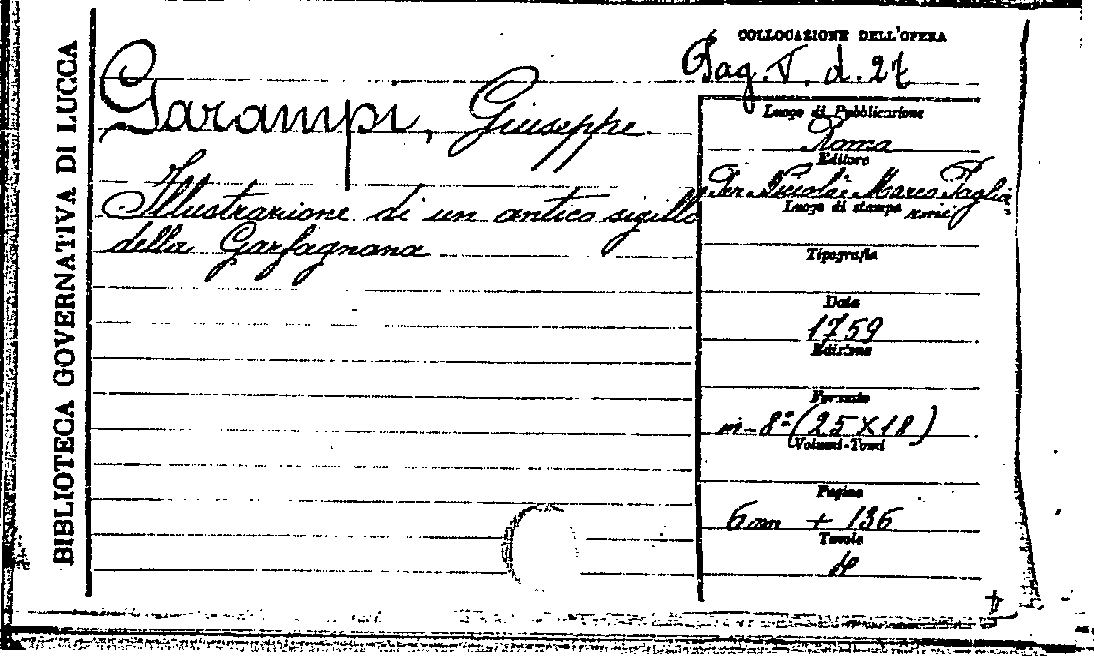 BIBLIOTECA GOVERNATIVA DI LUCCA
COLLOCAZIONE DELL'OPERA
Pag. V. d. 27
Garampi, Giuseppe
Illustrazione di un antico sigillo
della Garfagnana
Luogo di Pubblicazione
Roma
Editore
Per Niccolò e Marco Paglia
rini
Luogo di stampa
Tipografia
Data
1759
Edizione
Formato
in-8° (25 x 18)
Volumi-Tomi
Pagine
6 nn + 136
Tavole